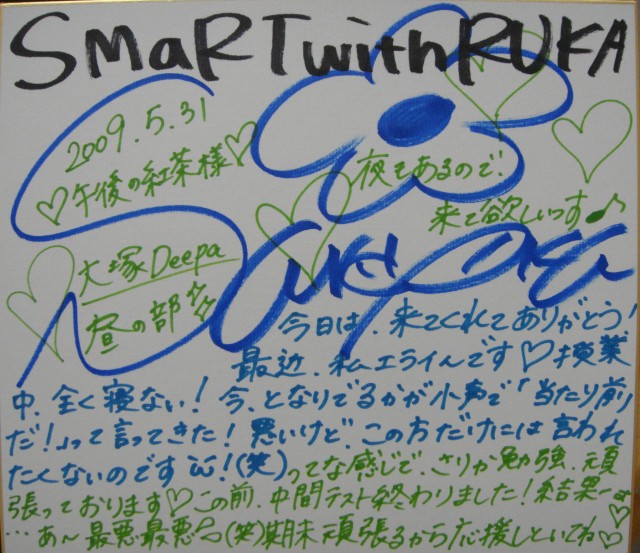 SMaRTwithRUKA
2009.5.31
♡午後の紅茶様♡
夜もあるので!
来て欲しいっす♪
大塚Deepa
昼の部
今日は、来てくれてありがとう!
最近、私エライんです♡授業
中、全く寝ない!今、となりでるかが小声で「当たり前
だ!」って言ってきた!悪いけど、この方だけには言われ
たくないのですw!(笑)ってな感じで、さりか勉強、頑
張っております♡この前、中間テスト終わりました!結果ー
…あ〜最悪最悪(笑)期末頑張るから応援しといてね♡